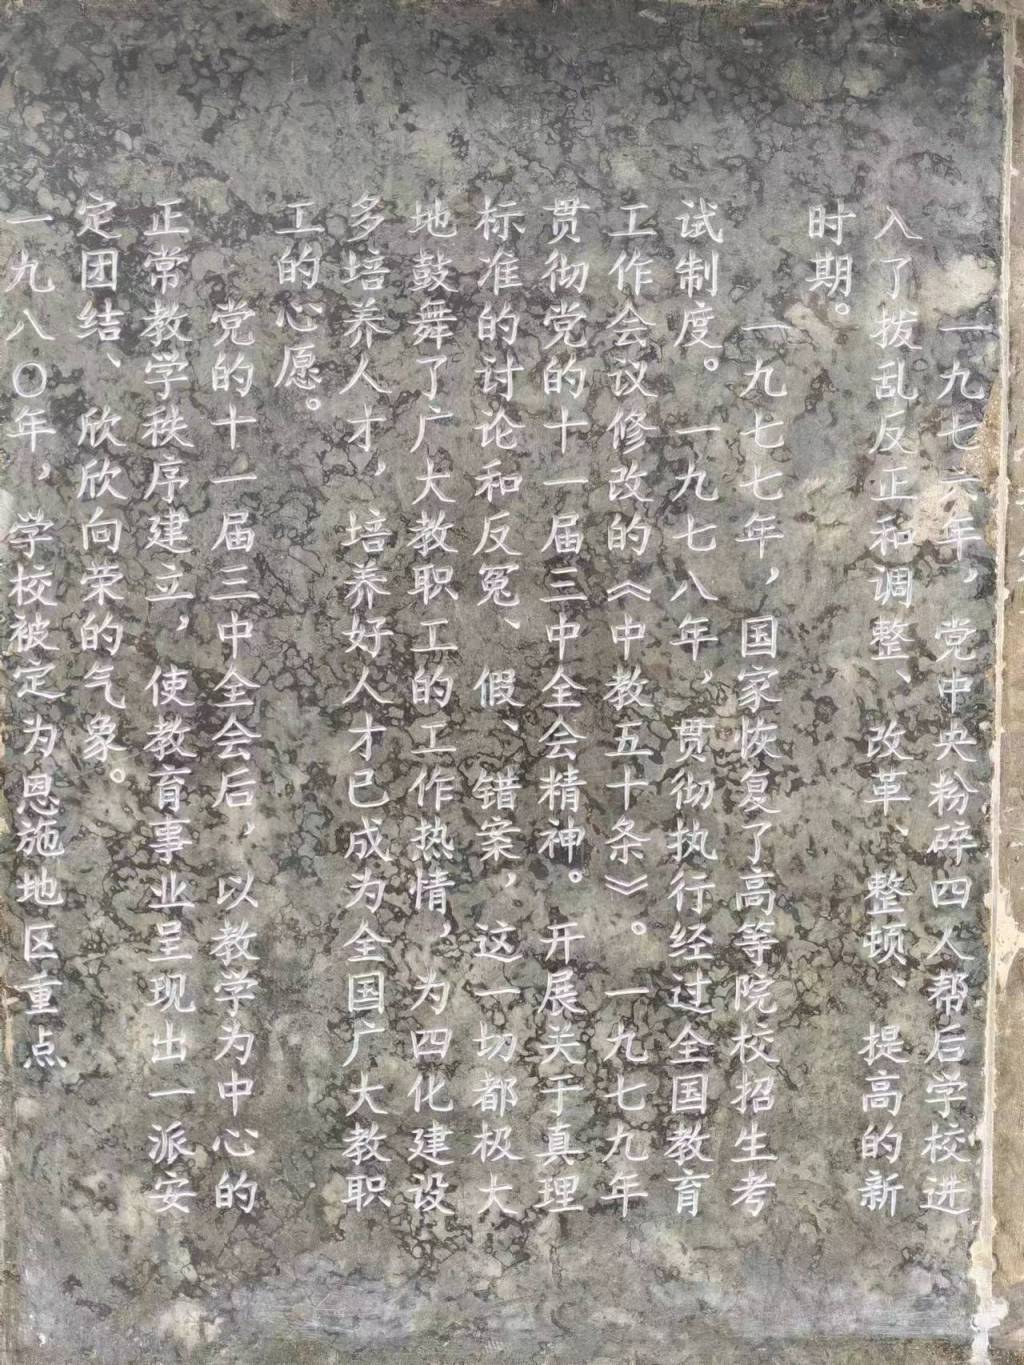 一九七六年，党中央粉碎四人帮后学校进
入了拨乱反正和调整、改革、整顿、提高的新
时期。
一九七七年，国家恢复了高等院校招生考
试制度。一九七八年，贯彻执行经过全国教育
工作会议修改的《中教五十条》。一九七九年
贯彻党的十一届三中全会精神。开展关于真理
标准的讨论和反冤、假、错案，这一切都极大
地鼓舞了广大教职工的工作热情，为四化建设
多培养人才，培养好人才已成为全国广大教职
工的心愿。
党的十一届三中全会后，以教学为中心的
正常教学秩序建立，使教育事业呈现出一派安
定团结、欣欣向荣的气象。
一九八〇年，学校被定为恩施地区重点